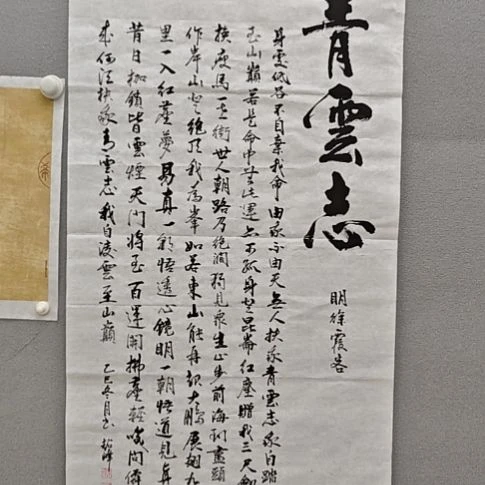 青雲志
明徐霞客
身處低谷不自棄我命由我不由天無人扶我青雲志我自踏
山巔若是命中無此運亦可孤身登崑崙紅塵贈我三尺劍
瘦馬一街世人朝路乃絕澗獨見眾生止步前海到盡頭
作岸山登絕頂我為峯如若東山能再起大鵬展翅九
里一入紅塵夢易真一朝悟透心鏡明一朝悟道見真
昔日枷鎖皆雲煙天門將至百運開拂塵輕嘆問儒
何須扶我青雲志我自凌雲至山巔
乙巳冬月書